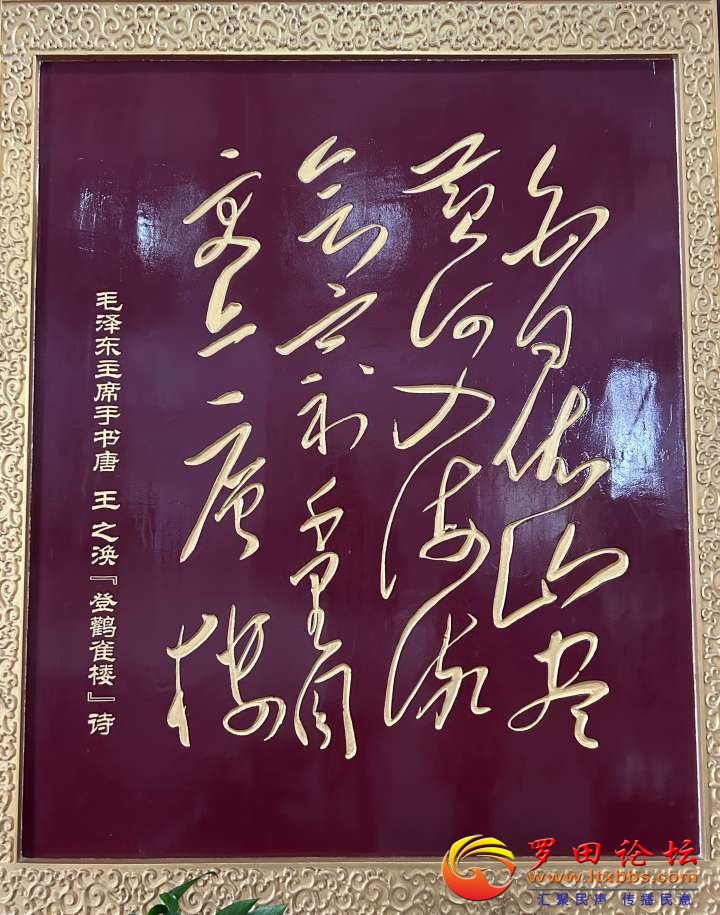 白日依山尽
黄河入海流
欲穷千里目
更上一层楼
毛泽东主席手书唐 王之涣『登鹳雀楼』诗
罗田论坛
www.ltxbbs.com
汇聚民声 传播民意